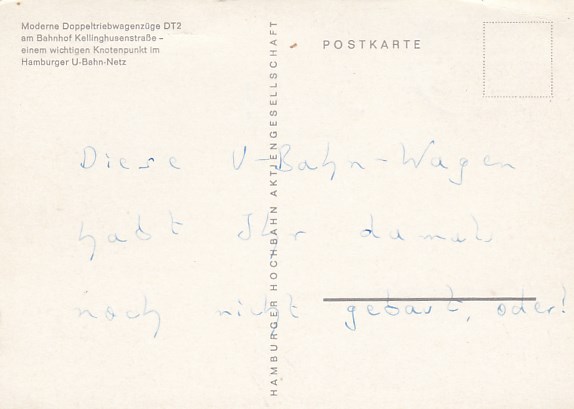 Moderne Doppeltriebwagenzüge DT2
am Bahnhof Kellinghusenstraße –
einem wichtigen Knotenpunkt im
Hamburger U-Bahn-Netz
POSTKARTE
HAMBURGER HOCHBAHN AKTIENGESELLSCHAFT
Diese U-Bahn-Wagen
habt Ihr damals
noch nicht gebaut, oder!